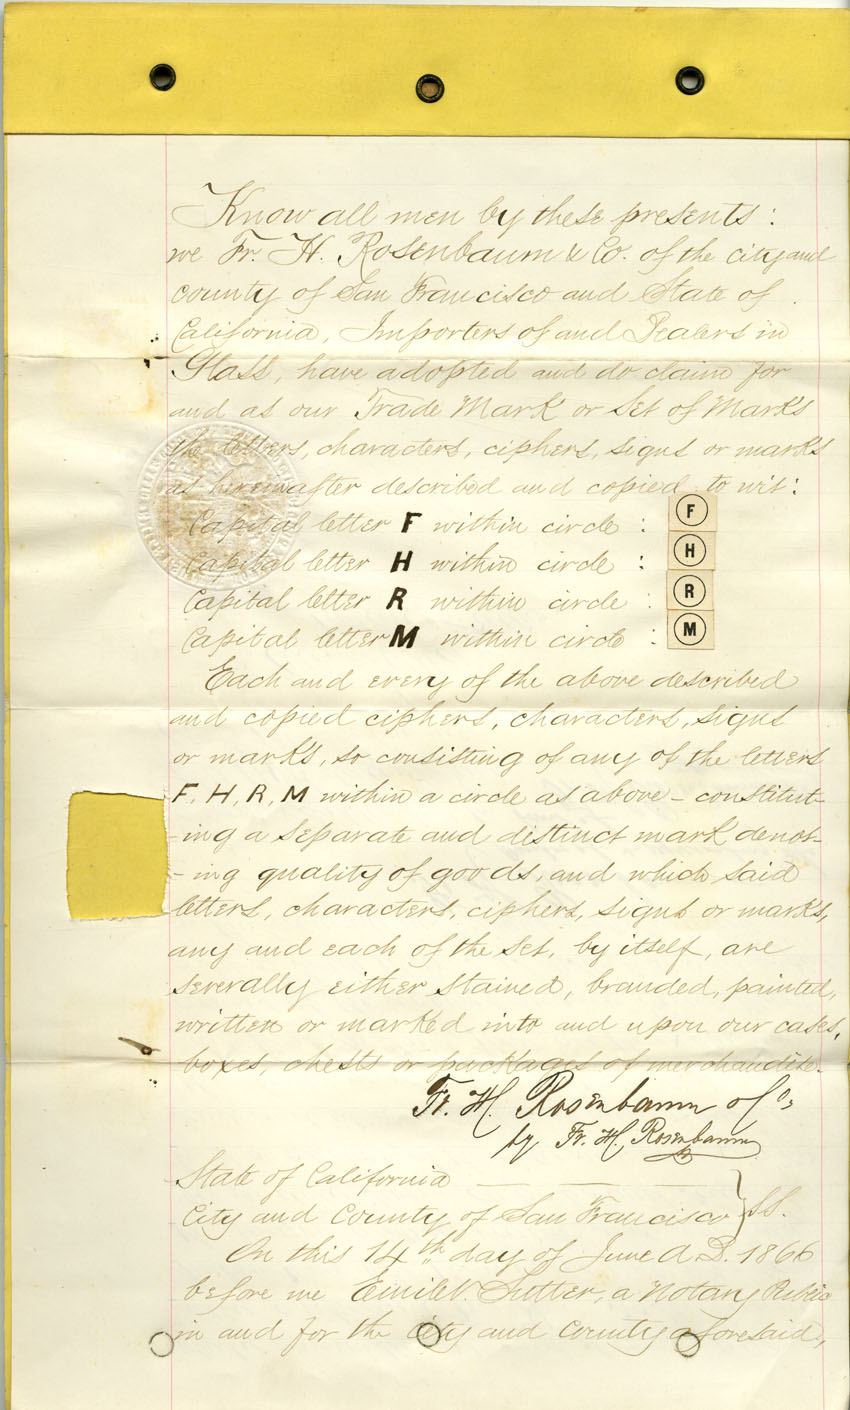 Know all men by these presents:
we Fr. H. Rosenbaum & Co. of the city and
county of San Francisco and State of
California, Importers of and Dealers in
Glass, have adopted and do claim for
and as our Trade Mark or Set of Marks
the letters, characters, ciphers, signs or marks
as hereinafter described and copied to wit:
Capital letter F within circle : F
Capital letter H within circle : H
Capital letter R within circle : R
Capital letter M within circle : M
Each and every of the above described
and copied ciphers, characters, signs
or marks, so consisting of any of the letters
F, H, R, M within a circle as above – constitut-
-ing a separate and distinct mark denot-
-ing quality of goods, and which said
letters, characters, ciphers, signs or marks,
any and each of the set, by itself, are
severally either stained, branded, painted,
written or marked into and upon our cases,
boxes, chests or packages of merchandise.
Fr. H. Rosenbaum & Co
by Fr. H. Rosenbaum
State of California
City and County of San Francisco } SS.
On this 14th day of June A.D. 1866
before me Emile V. Sutter, a Notary Public
in and for the City and County aforesaid,